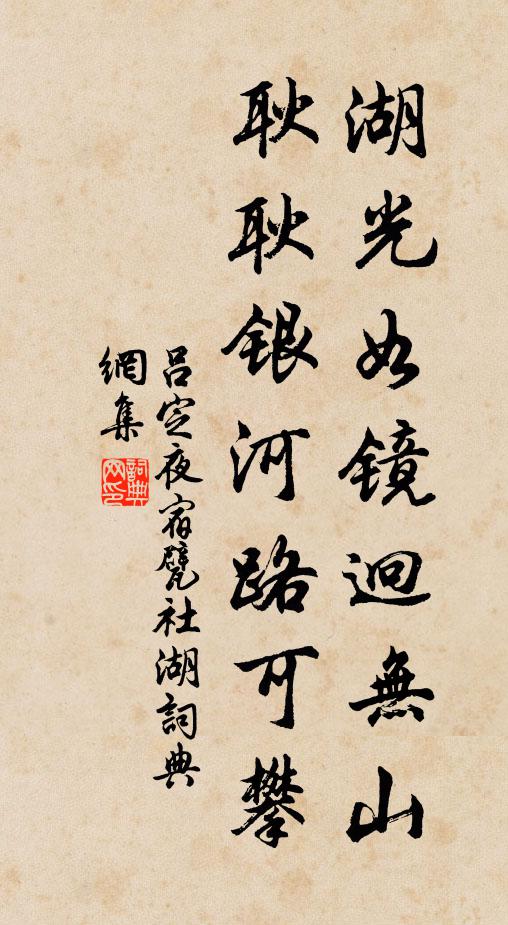 湖光如镜迥無山
耿耿银河路可攀
吕定夜宿甓社湖詞典
網集
詞典网印